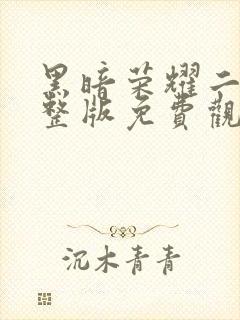 黑暗荣耀二
整版免費觀
沉木青青